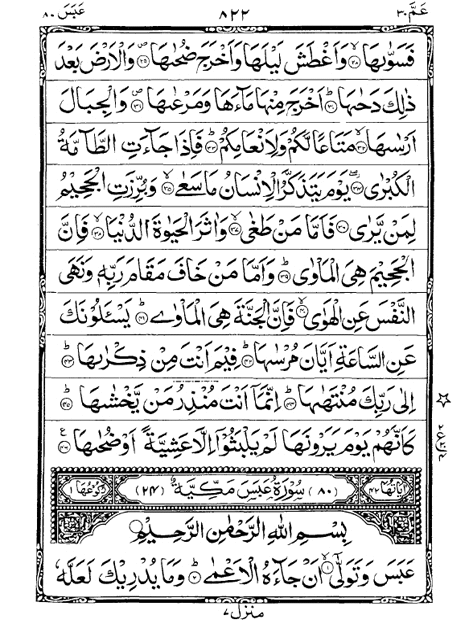 عَمَّ ٣٠ ٨٢٢ عَبَسَ ٨٠
فَسَوّٰىهَا ﴿٢٨﴾ وَاَغْطَشَ لَيْلَهَا وَاَخْرَجَ ضُحٰىهَا ﴿٢٩﴾ وَالْاَرْضَ بَعْدَ
ذٰلِكَ دَحٰىهَا ﴿٣٠﴾ اَخْرَجَ مِنْهَا مَآءَهَا وَمَرْعٰىهَا ﴿٣١﴾ وَالْجِبَالَ
اَرْسٰىهَا ﴿٣٢﴾ مَتَاعًا لَّكُمْ وَلِاَنْعَامِكُمْ ﴿٣٣﴾ فَاِذَا جَآءَتِ الطَّآمَّةُ
الْكُبْرٰى ﴿٣٤﴾ يَوْمَ يَتَذَكَّرُ الْاِنْسَانُ مَا سَعٰى ﴿٣٥﴾ وَبُرِّزَتِ الْجَحِيْمُ
لِمَنْ يَّرٰى ﴿٣٦﴾ فَاَمَّا مَنْ طَغٰى ﴿٣٧﴾ وَاٰثَرَ الْحَيٰوةَ الدُّنْيَا ﴿٣٨﴾ فَاِنَّ
الْجَحِيْمَ هِيَ الْمَاْوٰى ﴿٣٩﴾ وَاَمَّا مَنْ خَافَ مَقَامَ رَبِّهٖ وَنَهَى
النَّفْسَ عَنِ الْهَوٰى ﴿٤٠﴾ فَاِنَّ الْجَنَّةَ هِيَ الْمَاْوٰى ﴿٤١﴾ يَسْـَٔلُوْنَكَ
عَنِ السَّاعَةِ اَيَّانَ مُرْسٰىهَا ﴿٤٢﴾ فِيْمَ اَنْتَ مِنْ ذِكْرٰىهَا ﴿٤٣﴾
اِلٰى رَبِّكَ مُنْتَهٰىهَا ﴿٤٤﴾ اِنَّمَآ اَنْتَ مُنْذِرُ مَنْ يَّخْشٰىهَا ﴿٤٥﴾
كَاَنَّهُمْ يَوْمَ يَرَوْنَهَا لَمْ يَلْبَثُوْٓا اِلَّا عَشِيَّةً اَوْ ضُحٰىهَا ﴿٤٦﴾
اٰيَاتُهَا ٤٢ (٨٠) سُوْرَةُ عَبَسَ مَكِّيَّةٌ (٢٤) رُكُوْعُهَا
بِسْمِ اللّٰهِ الرَّحْمٰنِ الرَّحِيْمِ
عَبَسَ وَتَوَلّٰىٓ ﴿١﴾ اَنْ جَآءَهُ الْاَعْمٰى ﴿٢﴾ وَمَا يُدْرِيْكَ لَعَلَّهٗ
منزل ٧